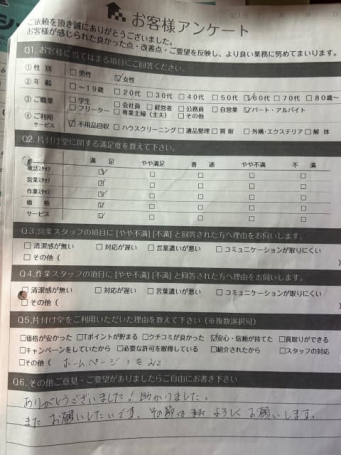 お客様アンケート
ご依頼を頂き誠にありがとうございました。
お客様が感じられた良かった点・改善点・ご要望を反映し、より良い業務に努めてまいります。
Q1.お客様に当てはまる項目にご回答ください。
① 性 別 □男性 ☑女性
② 年 齢 □〜19歳 □20代 □30代 □40代 □50代 ☑60代 □70代 □80歳〜
③ ご職業 □学生 □会社員 □経営者 □公務員 □自営業 ☑パート・アルバイト
□フリーター □専業主婦(主夫) □その他
④ ご利用サービス ☑不用品回収 □ハウスクリーニング □遺品整理 □買取 □外構・エクステリア □解体
Q2.片付け堂に関する満足度を教えて下さい。
満足 やや満足 普通 やや不満 不満
電話スタッフ ☑ □ □ □ □
営業スタッフ ☑ □ □ □ □
作業スタッフ ☑ □ □ □ □
価格 ☑ □ □ □ □
サービス ☑ □ □ □ □
Q3.営業スタッフの項目に[やや不満][不満]と回答された方へ理由をお伺いします。
□清潔感が無い □対応が遅い □言葉遣いが悪い □コミュニケーションが取りにくい
□その他（
Q4.作業スタッフの項目に[やや不満][不満]と回答された方へ理由をお伺いします。
□清潔感が無い □対応が遅い □言葉遣いが悪い □コミュニケーションが取りにくい
□その他（
Q5.片付け堂をご利用いただいた理由を教えて下さい（※複数選択可）
□価格が安かった □Tポイントが貯まる □クチコミが良かった ☑安心・信頼が持てた □買取りができる
□キャンペーンをしていたから □必要な許可を取得している □紹介されたから □スタッフの対応
□その他（ ホームページを見て
Q6.その他ご意見・ご要望がありましたらご自由にお書き下さい
ありがとうございました！助かりました。
またお願いしたいです。その節は よろしくお願いします。